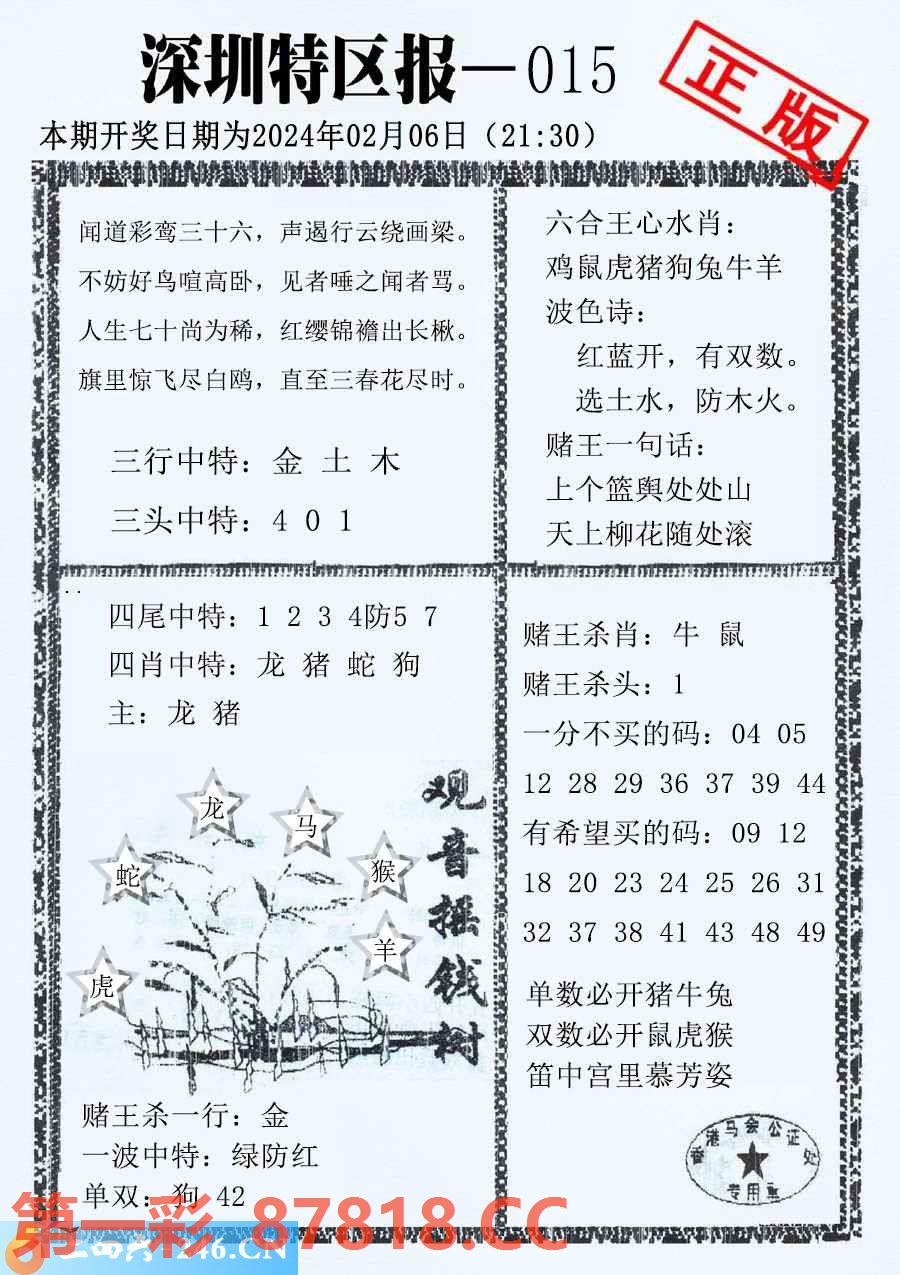 深圳特区报—015
正版
本期开奖日期为2024年02月06日（21:30）
闻道彩鸾三十六，声遏行云绕画梁。
不妨好鸟喧高卧，见者唾之闻者骂。
人生七十尚为稀，红缨锦襜出长楸。
旗里惊飞尽白鸥，直至三春花尽时。
三行中特：金 土 木
三头中特：4 0 1
六合王心水肖：
鸡鼠虎猪狗兔牛羊
波色诗：
红蓝开，有双数。
选土水，防木火。
赌王一句话：
上个篮舆处处山
天上柳花随处滚
四尾中特：1 2 3 4防5 7
四肖中特：龙 猪 蛇 狗
主：龙 猪
观音摇钱树
龙
马
蛇
猴
羊
虎
赌王杀一行：金
一波中特：绿防红
单双：狗 42
赌王杀肖：牛 鼠
赌王杀头：1
一分不买的码：04 05
12 28 29 36 37 39 44
有希望买的码：09 12
18 20 23 24 25 26 31
32 37 38 41 43 48 49
单数必开猪牛兔
双数必开鼠虎猴
笛中宫里慕芳姿
香港马会公证处
专用章
第一彩 87818.CC
246.CN